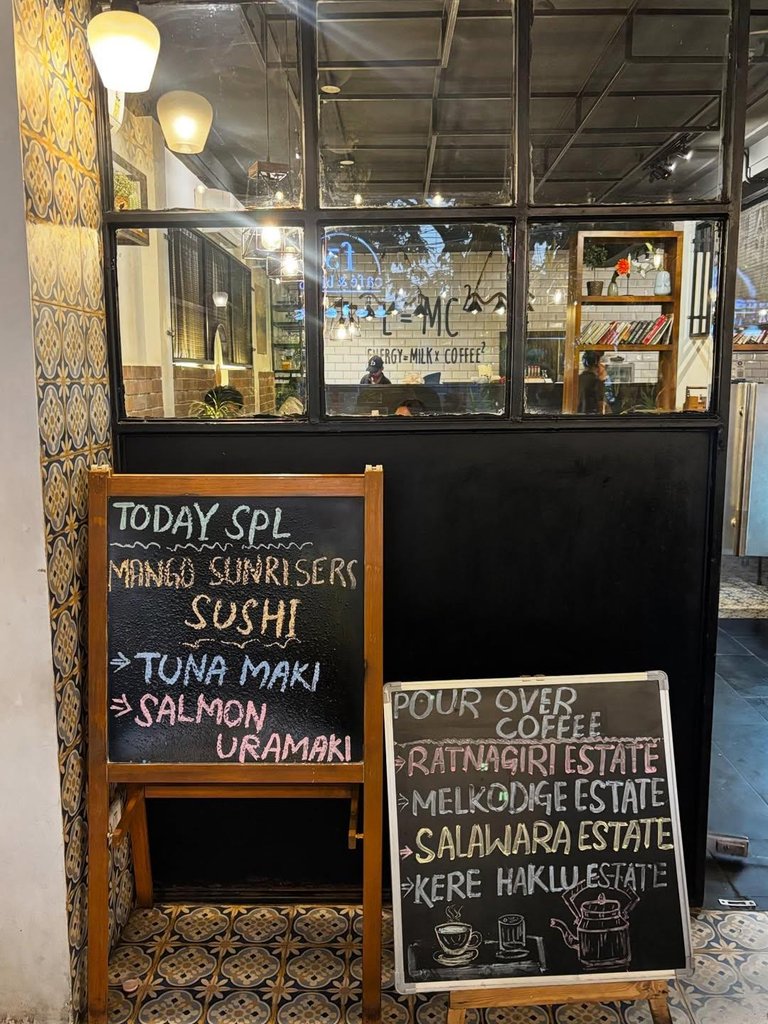 E=MC²
ENERGY=MILK x COFFEE²
TODAY SPL
MANGO SUNRISERS
SUSHI
TUNA MAKI
SALMON
URAMAKI
POUR OVER
COFFEE
RATNAGIRI ESTATE
MELKODIGE ESTATE
SALAWARA ESTATE
KERE HAKLU ESTATE